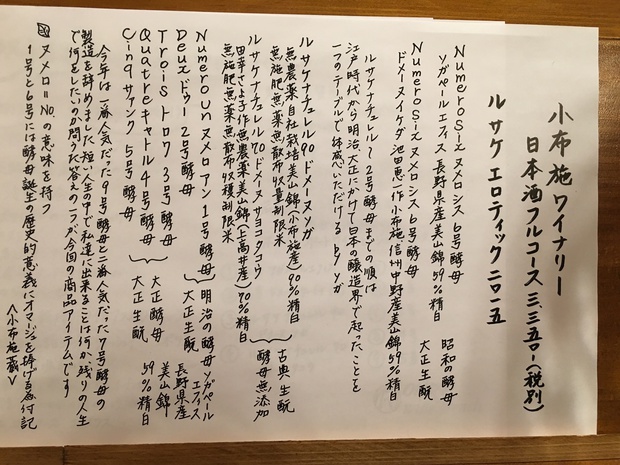 小布施ワイナリー
日本酒フルコース三、三五〇-(税別)
ルサケ エロティック 二〇一五
Numero Six ヌメロシス 6号酵母 昭和の酵母
ソガペールエフィス 長野県産美山錦59%精白 大正生酛
Numero Six ヌメロシス 6号酵母
ドメーヌイケダ 池田恵一作 小布施、信州中野産美山錦59%精白
ルサケナチュレル〜2号酵母までの順は
江戸時代から明治、大正にかけて日本の醸造界で起ったことを
一つのテーブルで体感いただける byソガ
ルサケナチュレル90 ドメーヌソガ
無農薬自社栽培美山錦(小布施産)90%精白 古典生酛
無施肥無薬無散布収量制限米 酵母無添加
ルサケナチュレル70 ドメーヌサヨコタコウ
田幸さよ子作無農薬美山錦(上高井産)70%精白
無施肥無薬無散布収穫制限米
Numero un ヌメロアン 1号酵母 明治の酵母 ソガペールエフィス
Deux ドゥー 2号酵母 大正生酛 長野県産
Trois トロワ 3号酵母 大正酵母 美山錦
Quatre キャトル 4号酵母 大正生酛 59%精白
Cinq サァンク 5号酵母
今年は一番人気だった9号酵母と二番人気だった7号酵母の
製造を辞めました 短い人生の中で私達に出来ることは何か、残りの人生
で何をしたいのか問うた答えの一つが今回の商品アイテムです
図 ヌメロ=No.の意味を持つ
1号と6号には酵母誕生の歴史的意義にオマージュを捧げる為付記
<小布施蔵>